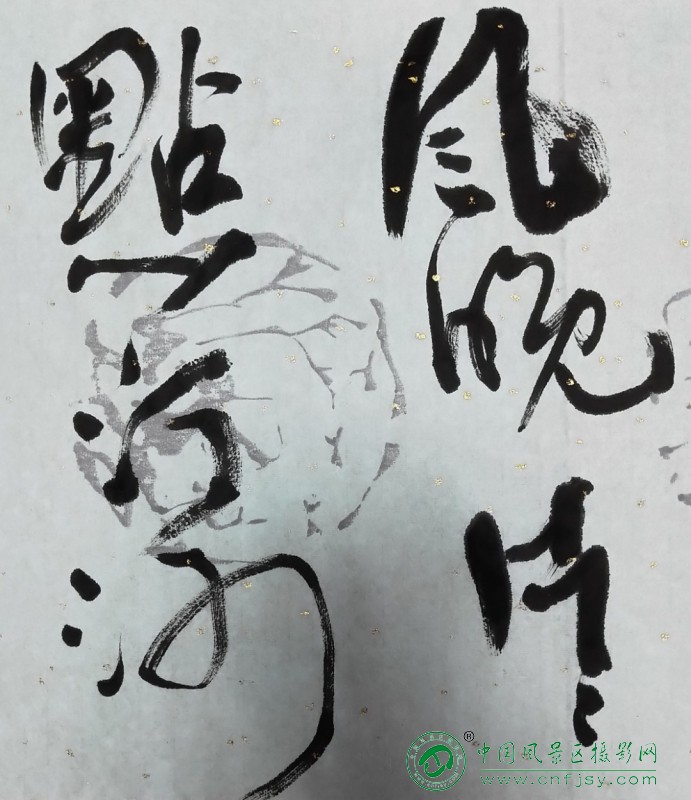 风晚晴
點
中国风景区摄影网
www.cnfjsy.com